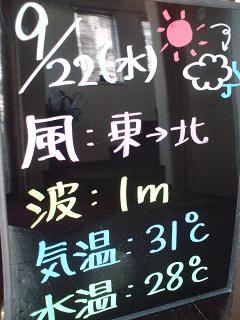 9/22(水)
風:東→北
波:1m
気温:31℃
水温:28℃